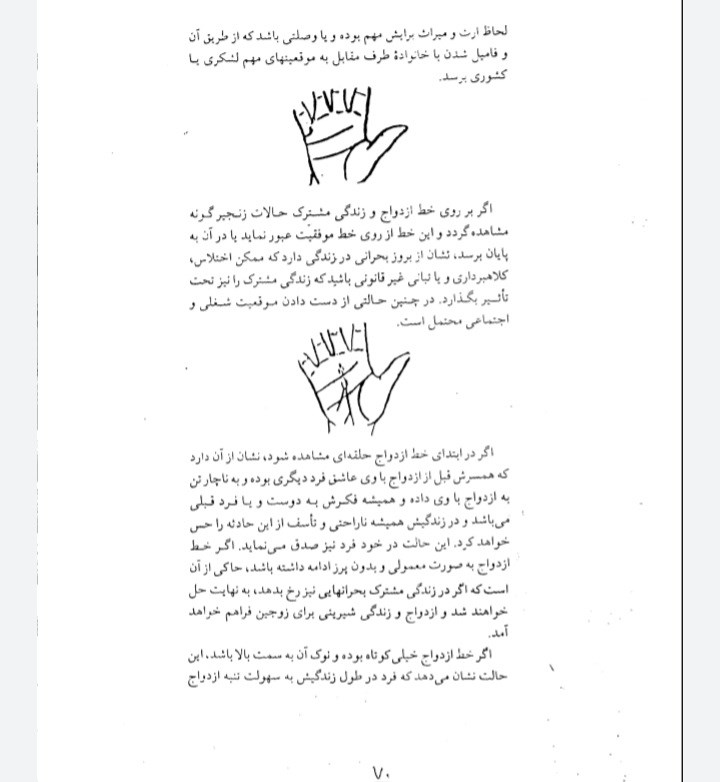 لحاظ ارث و میراث برایش مهم بوده و یا وصلتی باشد که از طریق آن
و فامیل شدن با خانوادهٔ طرف مقابل به موقعیتهای مهم لشکری یا
کشوری برسد.
اگر بر روی خط ازدواج و زندگی مشترک حالات زنجیرگونه
مشاهده گردد و این خط از روی خط موفقیّت عبور نماید یا در آن به
پایان برسد، نشان از بروز بحرانی در زندگی دارد که ممکن اختلاس،
کلاهبرداری و یا تبانی غیر قانونی باشید که زندگی مشترک را نیز تحت
تأثیر بگذارد. در چنین حالتی از دست دادن موقعیت شغلی و
اجتماعی محتمل است.
اگر در ابتدای خط ازدواج حلقه‌ای مشاهده شود، نشان از آن دارد
که همسرش قبل از ازدواج با وی عاشق فرد دیگری بوده و به ناچار تن
به ازدواج با وی داده و همیشه فکرش به دوست و یا فرد قبلی
می‌باشد و در زندگیش همیشه ناراحتی و تأسف از این حادثه را حس
خواهد کرد. این حالت در خود فرد نیز صدق می‌نماید. اگر خط
ازدواج به صورت معمولی و بدون پرز ادامه داشته باشد، حاکی از آن
است که اگر در زندگی مشترک بحرانهایی نیز رخ بدهد، به نهایت حل
خواهند شد و ازدواج و زندگی شیرینی برای زوجین فراهم خواهد
آمد.
اگر خط ازدواج خیلی کوتاه بوده و نوک آن به سمت بالا باشد، این
حالت نشان می‌دهد که فرد در طول زندگیش به سهولت تنبه ازدواج
۷۰